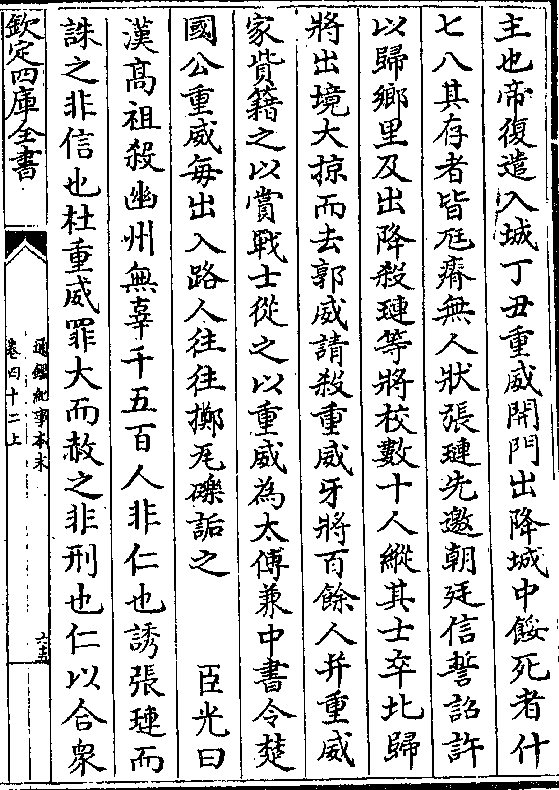 主也帝復遣入城丁丑重威開門出降城中餒死者什
七八其存者皆尫瘠無人狀張璉先邀朝廷信誓詔許
以歸鄉里及出降殺璉等將校數十人縱其士卒北歸
將出境大掠而去郭威請殺重威牙將百餘人并重威
家貲籍之以賞戰士從之以重威為太傅兼中書令楚
國公重威每出入路人往往擲瓦礫詬之　　臣光曰
漢高祖殺幽州無辜千五百人非仁也誘張璉而
誅之非信也杜重威罪大而赦之非刑也仁以合衆
欽定四庫全書
通鑑紀事本末
卷四十二上